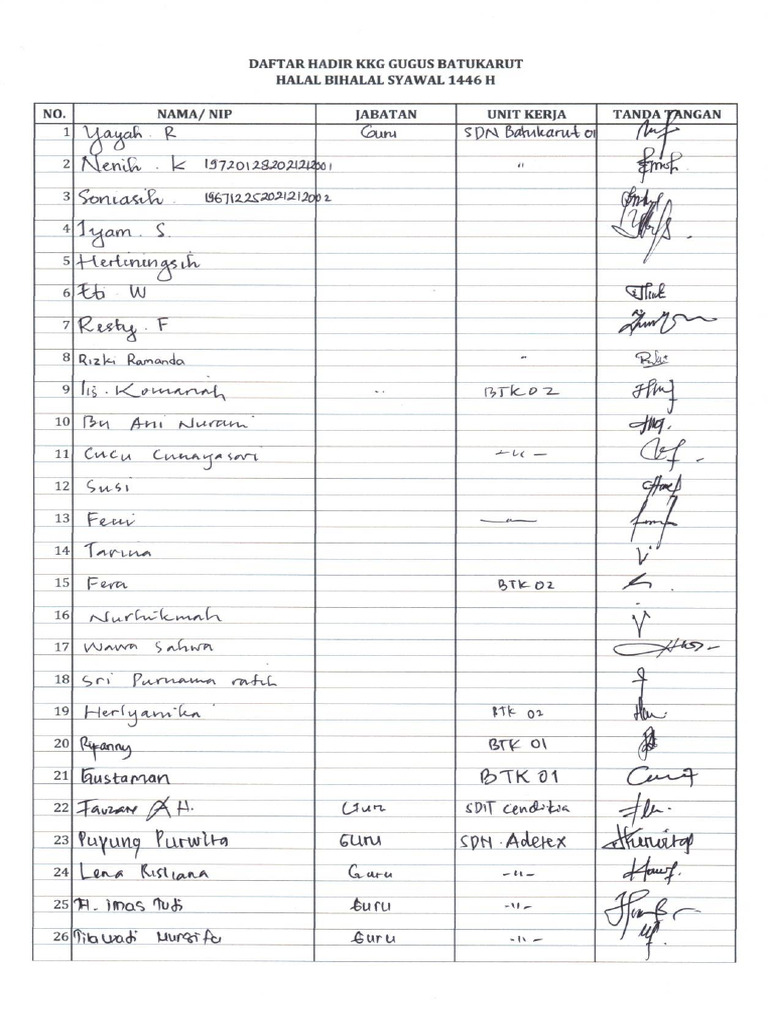 DAFTAR HADIR KKG GUGUS BATUKARUT
HALAL BIHALAL SYAWAL 1446 H
NO. NAMA/ NIP JABATAN UNIT KERJA TANDA TANGAN
1 Yayah. R Guru SDN Batukarut 01
2 Nenih. K 197201282021212001 "
3 Soniasih 196712252021212002
4 Iyam. S.
5 Herliningsih
6 Eti. W
7 Resty. F
8 Rizki Ramanda "
9 Iis. Komariah " BTK 02
10 Bu Ani Nurani
11 Cucu Cunayasari -"-
12 Susi
13 Feni -"-
14 Tarina
15 Fera BTK 02
16 Nurhikmah
17 Wawa Sahwa
18 Sri Purnama ratih
19 Herlyanika BTK 02
20 BTK 01
21 Gustaman BTK 01
22 Fauzan A H. Guru SDIT Cendikia
23 Puyung Purwita GURU SDN. Adetex
24 Lena Risliana Guru -"-
25 H. Imas Tudi Guru -"-
26 Guru -"-